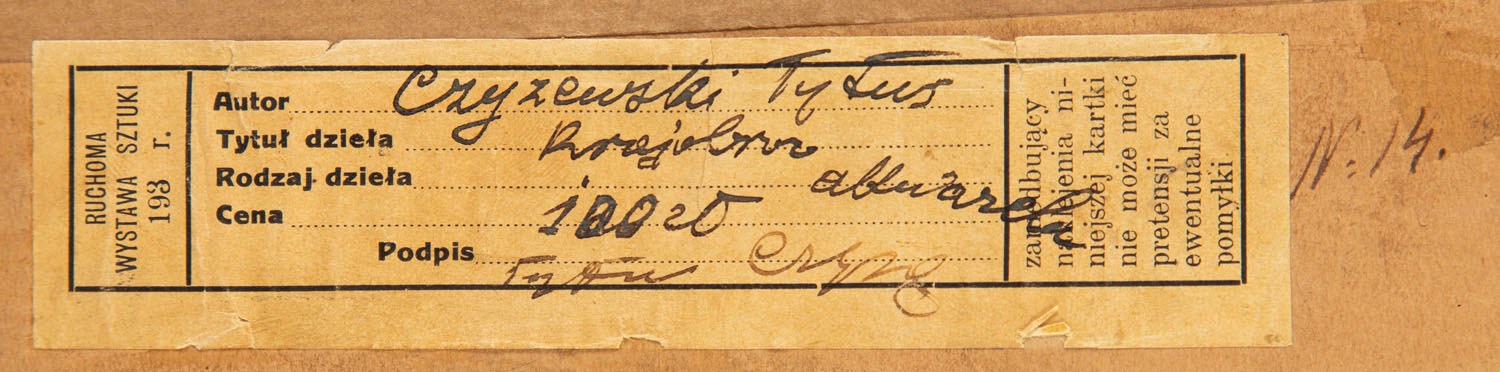 RUCHOMA
WYSTAWA SZTUKI
193 r.
Autor Czyżewski Tytus
Tytuł dzieła Krajobraz
Rodzaj dzieła akwarela
Cena 100 zł
Podpis Tytus Czyż
zaniedbujący
naklejenia ni-
niejszej kartki
nie może mieć
pretensji za
ewentualne
pomyłki
N: 14.